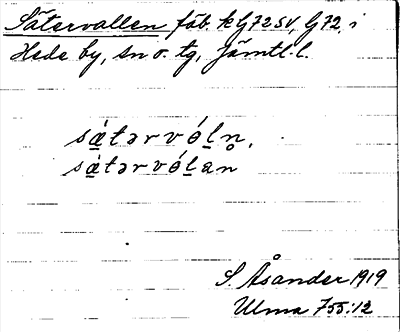 Sätervallen fäb. k G72SV, G72, i
Hede by, sn o. tg, Jämtl. l.
sǽtərvóln̥,
sǽtərvólan
S. Åsander 1919
Ulma 755:12